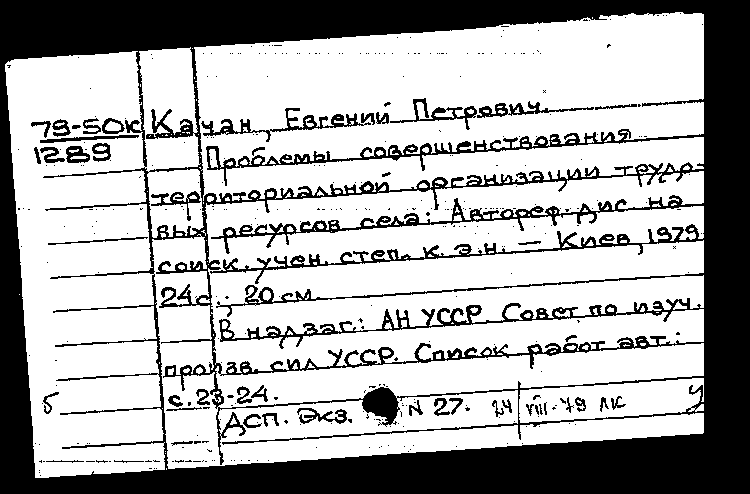 79-50к Качан, Евгений Петрович.
1289 Проблемы совершенствования
территориальной организации трудо-
вых ресурсов села: Автореф. дис. на
соиск. учен. степ. к. э.н. — Киев, 1979
24с.; 20 см.
В надзаг.: АН УССР. Совет по изуч.
произв. сил УССР. Список работ авт.:
б с.23-24.
ДСП. Экз. N 27. 24 VIII-79 ЛК У